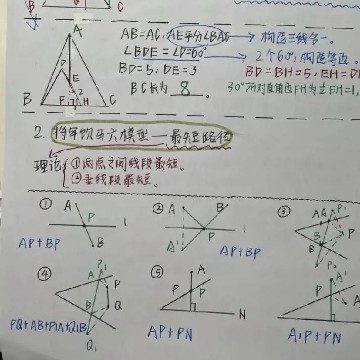 B C
AB=AC, AE平分∠BAC → 构造三线合一。
∠BDE=∠D=60° → 2个60°,构造等边。
BD=5, DE=3 BD=BH=5, EH=D
BC长为 8 。 30°所对直角边FH为 EH=1,
A
D
E
2
B F H C
2. 将军饮马六模型——最短路径
理论 ①两点之间线段最短。
②垂线段最短。
① A P l B
AP+BP
② A B P l A'
AP+BP
③ P1 A P B
④ P1 A P B Q Q1
PQ+AB+P1A+Q1B
⑤ A P P N
AP+PN
A P N
A1P+PN